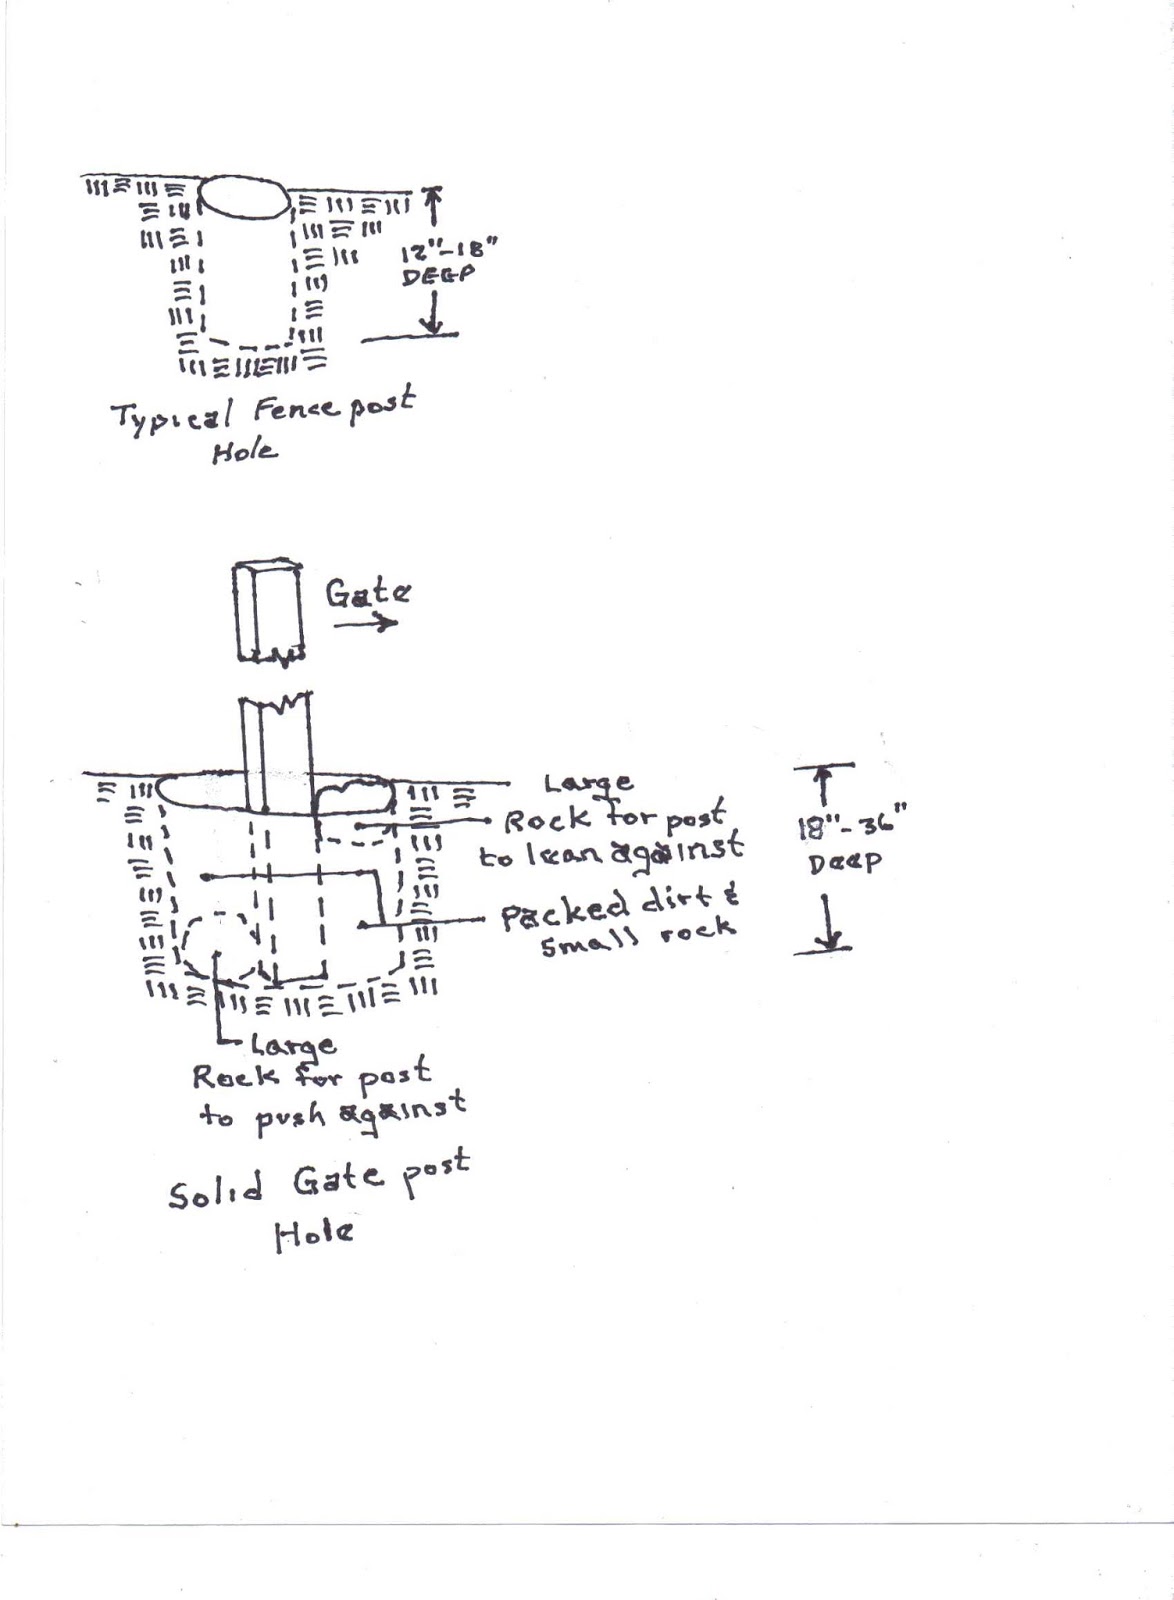 12"-18"
DEEP
Typical Fence post
Hole
Gate
Large
Rock for post
to lean against
18"-36"
Deep
Packed dirt &
small rock
Large
Rock for post
to push against
Solid Gate post
Hole